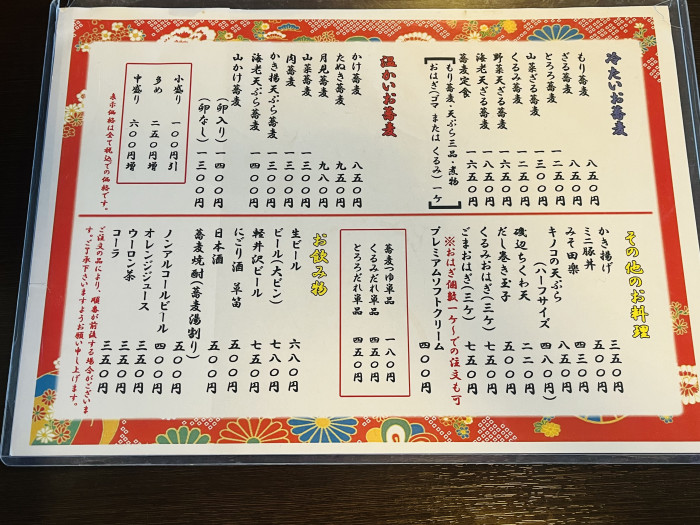 冷たいお蕎麦
もり蕎麦 八五〇円
ざる蕎麦 八五〇円
とろろ蕎麦 一二五〇円
山菜ざる蕎麦 一三〇〇円
くるみ蕎麦 一二五〇円
野菜天ざる蕎麦 一六五〇円
海老天ざる蕎麦 一八五〇円
蕎麦定食 一六五〇円
【もり蕎麦・天ぷら三品・煮物
おはぎ(ゴマ または くるみ)一ヶ】
温かいお蕎麦
かけ蕎麦 八五〇円
たぬき蕎麦 九五〇円
月見蕎麦 九八〇円
山菜蕎麦 一三〇〇円
肉蕎麦 一三〇〇円
かき揚天ぷら蕎麦 一三〇〇円
海老天ぷら蕎麦 一四〇〇円
山かけ蕎麦
(卵入り) 一四〇〇円
(卵なし) 一三〇〇円
小盛り 一〇〇円引
多め 二五〇円増
中盛り 六〇〇円増
表示価格は全て税込での価格です。
その他のお料理
かき揚げ 三五〇円
ミニ豚丼 五〇〇円
みそ田楽 四三〇円
キノコの天ぷら 八五〇円
(ハーフサイズ 四八〇円)
磯辺ちくわ天 二二〇円
だし巻き玉子 五五〇円
くるみおはぎ(三ヶ) 七五〇円
ごまおはぎ(三ヶ) 七五〇円
※おはぎ個数一ヶ〜での注文も可
プレミアムソフトクリーム 四〇〇円
蕎麦つゆ単品 一八〇円
くるみだれ単品 四五〇円
とろろだれ単品 四五〇円
お飲み物
生ビール 六八〇円
ビール(大ビン) 七八〇円
軽井沢ビール 七五〇円
にごり酒 草笛 五〇〇円
日本酒 五〇〇円
蕎麦焼酎(蕎麦湯割り) 五〇〇円
ノンアルコールビール 四〇〇円
オレンジジュース 三五〇円
ウーロン茶 三五〇円
コーラ 三五〇円
ご注文の品により、順番が前後する場合がございま
す。ご了承下さいますようお願い申し上げます。